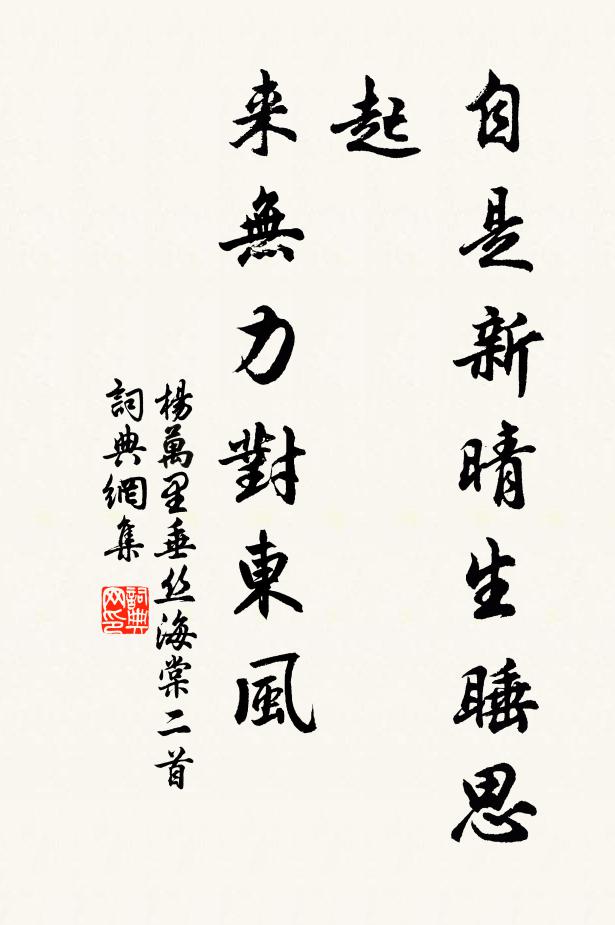 自是新晴生睡思
起
来無力對東風
楊萬里垂丝海棠二首
詞典網集
詞典
网印